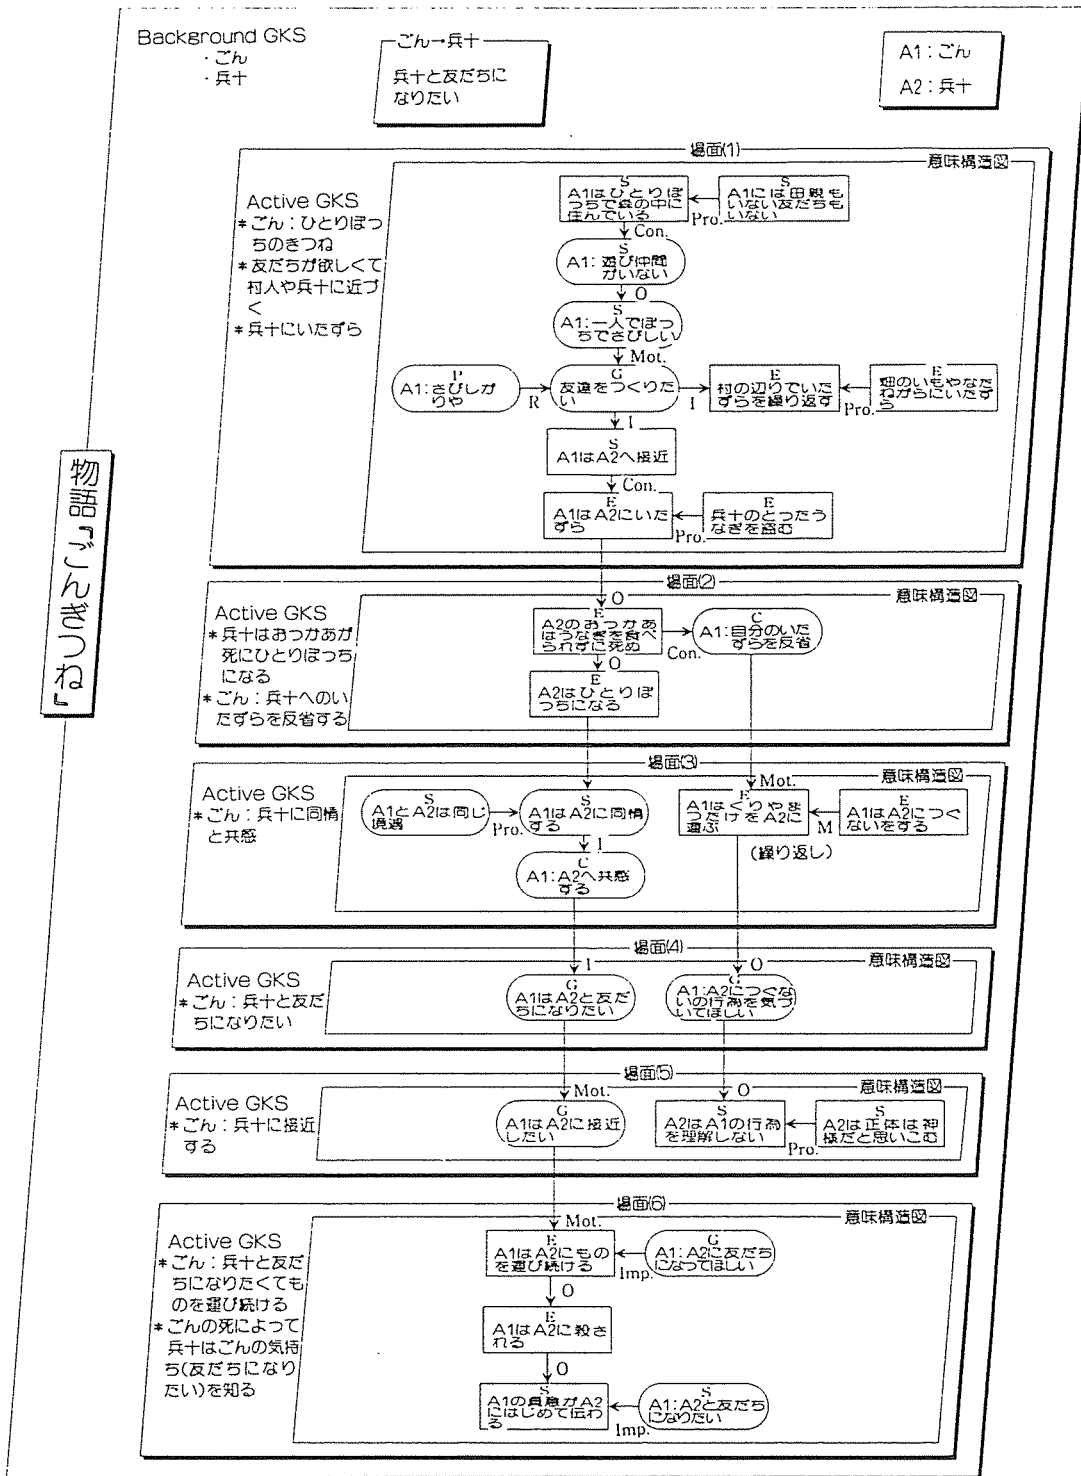 Background GKS
・ごん
・兵十
ごん→兵十
兵十と友だちに
なりたい
A1：ごん
A2：兵十
物語『ごんぎつね』
場面(1)
意味構造図
Active GKS
＊ごん：ひとりぼっ
ちのきつね
＊友だちが欲しくて
村人や兵十に近づ
く
＊兵十にいたずら
S
A1はひとりぼ
っちで森の中に
住んでいる
Pro.
S
A1には母親も
いない友だちも
いない
Con.
S
A1：遊び仲間
がいない
O
S
A1：一人でぼっ
ちでさびしい
Mot.
P
A1：さびしが
りや
R
G
友達をつくりた
い
I
E
村の辺りでいた
ずらを繰り返す
Pro.
E
畑のいもやなた
ねがらにいたず
ら
I
S
A1はA2へ接近
Con.
E
A1はA2にいた
ずら
Pro.
E
兵十のとったう
なぎを盗む
場面(2)
意味構造図
Active GKS
＊兵十はおっかあが
死にひとりぼっち
になる
＊ごん：兵十へのい
たずらを反省する
O
E
A2のおっかあ
はうなぎを食べ
られずに死ぬ
Con.
C
A1：自分のいた
ずらを反省
O
E
A2はひとりぼ
っちになる
場面(3)
意味構造図
Active GKS
＊ごん：兵十に同情
と共感
S
A1とA2は同じ
境遇
Pro.
S
A1はA2に同情
する
Mot.
E
A1はくりやま
つだけをA2に
運ぶ
M
E
A1はA2につぐ
ないをする
(繰り返し)
I
C
A1：A2へ共感
する
場面(4)
意味構造図
Active GKS
＊ごん：兵十と友だ
ちになりたい
I
G
A1はA2と友だ
ちになりたい
O
G
A1：A2につぐな
いの行為を気づ
いてほしい
場面(5)
意味構造図
Active GKS
＊ごん：兵十に接近
する
Mot.
G
A1はA2に接近
したい
O
S
A2はA1の行為
を理解しない
Pro.
S
A2は正体は神
様だと思いこむ
場面(6)
意味構造図
Active GKS
＊ごん：兵十と友だ
ちになりたくても
のを運び続ける
＊ごんの死によって
兵十はごんの気持
ち(友だちになり
たい)を知る
Mot.
E
A1はA2にもの
を運び続ける
Imp.
G
A1：A2に友だち
になってほしい
O
E
A1はA2に殺さ
れる
O
S
A1の真意がA2
にはじめて伝わ
る
Imp.
S
A1：A2と友だち
になりたい